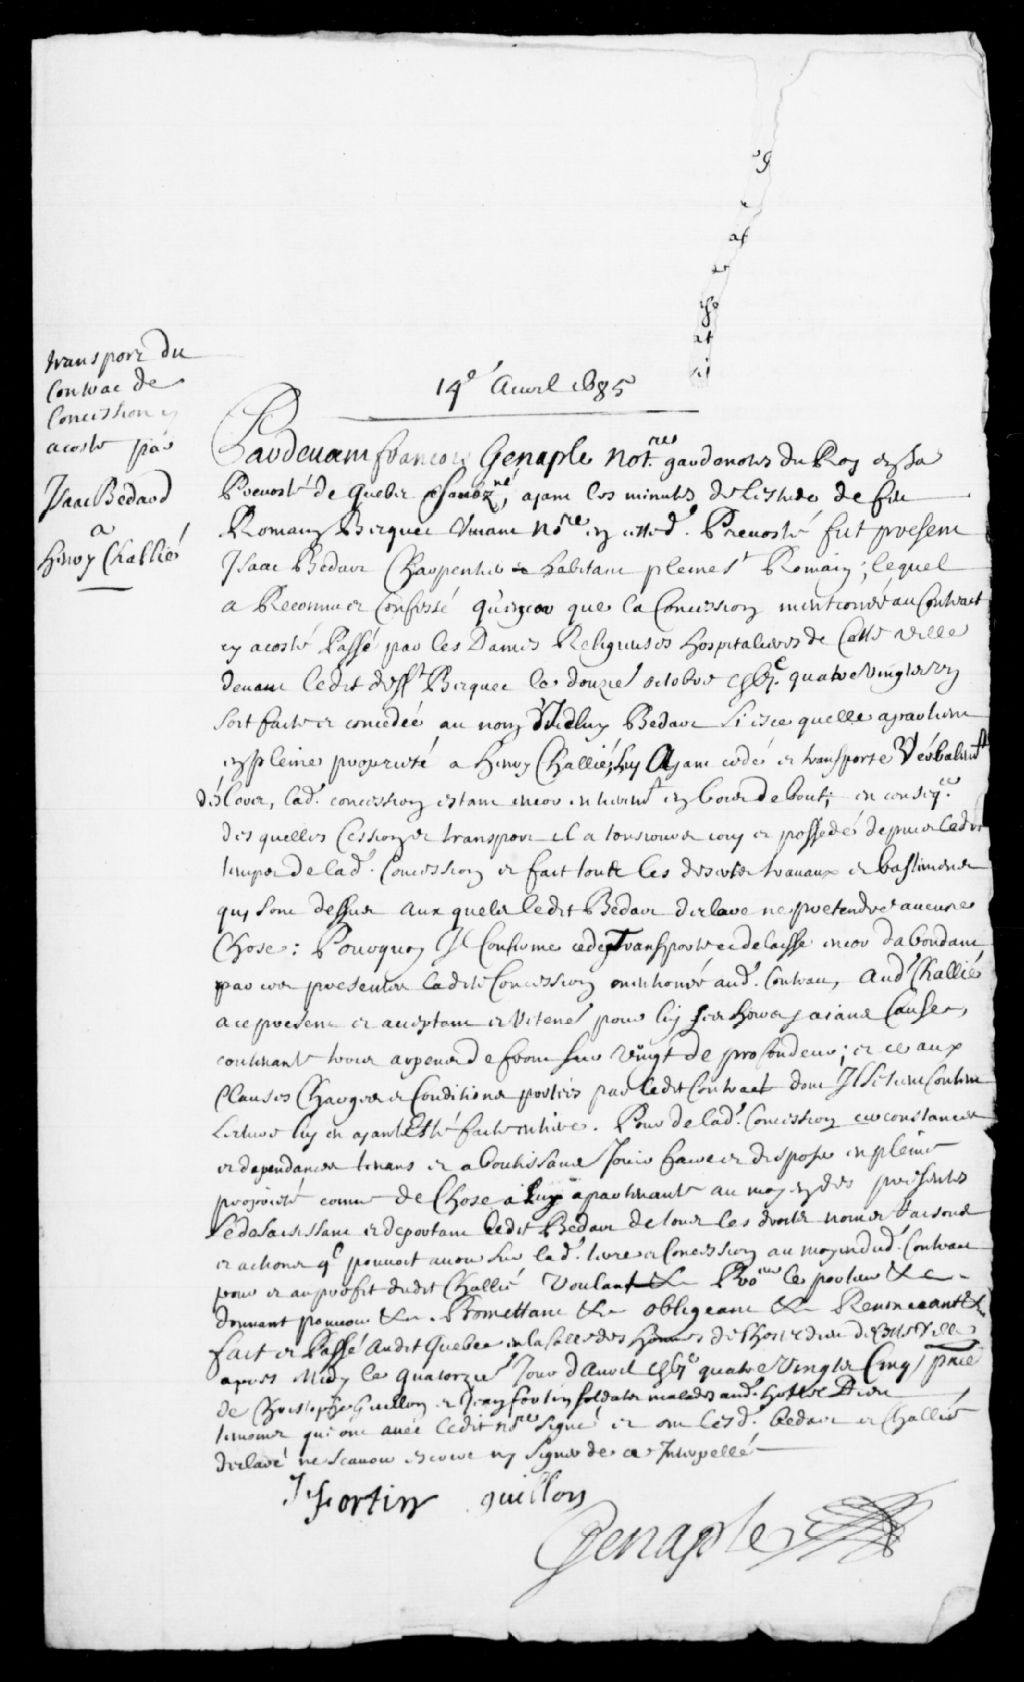 14e Avril 1685
transport du
Contrac de
Concession cy
acosté par
Isaac Bedard
a
Henry Challié
Pardevant francois Genaple Notre gardenottes du Roy en sa
Prevosté de Quebec soubzné, ayant les minutes de l'estude de feu
Romain Becquet vivant Nore en cetted. Prevosté fut present
Isaac Bedart Charpentier & habitant pleine St Romain; lequel
a Reconnu et Confessé qu'encor que la Concession mentionnée au Contract
cy acosté Passé par les Dames Religieuses hospitalieres de Cette ville
devant ledit defft Becquet le douzie octobre quatre vingts un
soit faite et concedée au nom dudit Bedart si esce quelle apartient
en pleine proprieté a Henry Challié, luy Ayant cedé et transporté Verbalemt
déslors, lad. concession estant encor entieremt en bois de bout; en conseqce
des quelles Cession et transport il a tousjours jouy et possedé depuis ledit
temps de lad. Concession et fait toute les deserts travaux et bastimens
qui sont dessus aux quels ledit Bedart declare ne pretendre aucune
Chose: Pourquoy Il Confirme cede Transporte et delaisse encor dabondant
par ces presentes ladite Concession mentionée aud. Contract, Aud. Challié
a ce present et acceptant et retenet pour luy ses hoirs et ayans Cause,
contenant trois arpens de front sur vingt de profondeur; et ce aux
Clauses Charges et Conditions portées par ledit Contract dont Il se tient Content
Lecture luy en ayant Esté faite entiere. Pour de lad. Concession circonstances
et dependances tenans et aboutissans Jouir faire et disposer en pleine
proprieté comme de Chose a luy apartenante au moyen des presentes
Se desaisissant et deportant ledit Bedart de tous les droits noms raisons
et actions qe pouvoit avoir sur lad. terre et Concession au moyen dud. Contract
pour et au profit dudit Challié Voulant &c Procur le porteur &c
donnant pouvoir &c. Promettant &c obligeant &c Renonceant &c
fait et Passé Audit Quebec en la salle des hommes de l'hostel dieu de Cette Ville
apres Midy le quatorzie Jour d'avril quatre Vingts Cinq, pnce
de Christophe Guillon et Jean fortin soldats malades aud. Hostel Dieu
temoins qui ont avec ledit nore signé et ont lesd. bedart et Challié
declaré ne scavoir escrire ny signer de ce Interpellés
J fortin guillon
Genaple